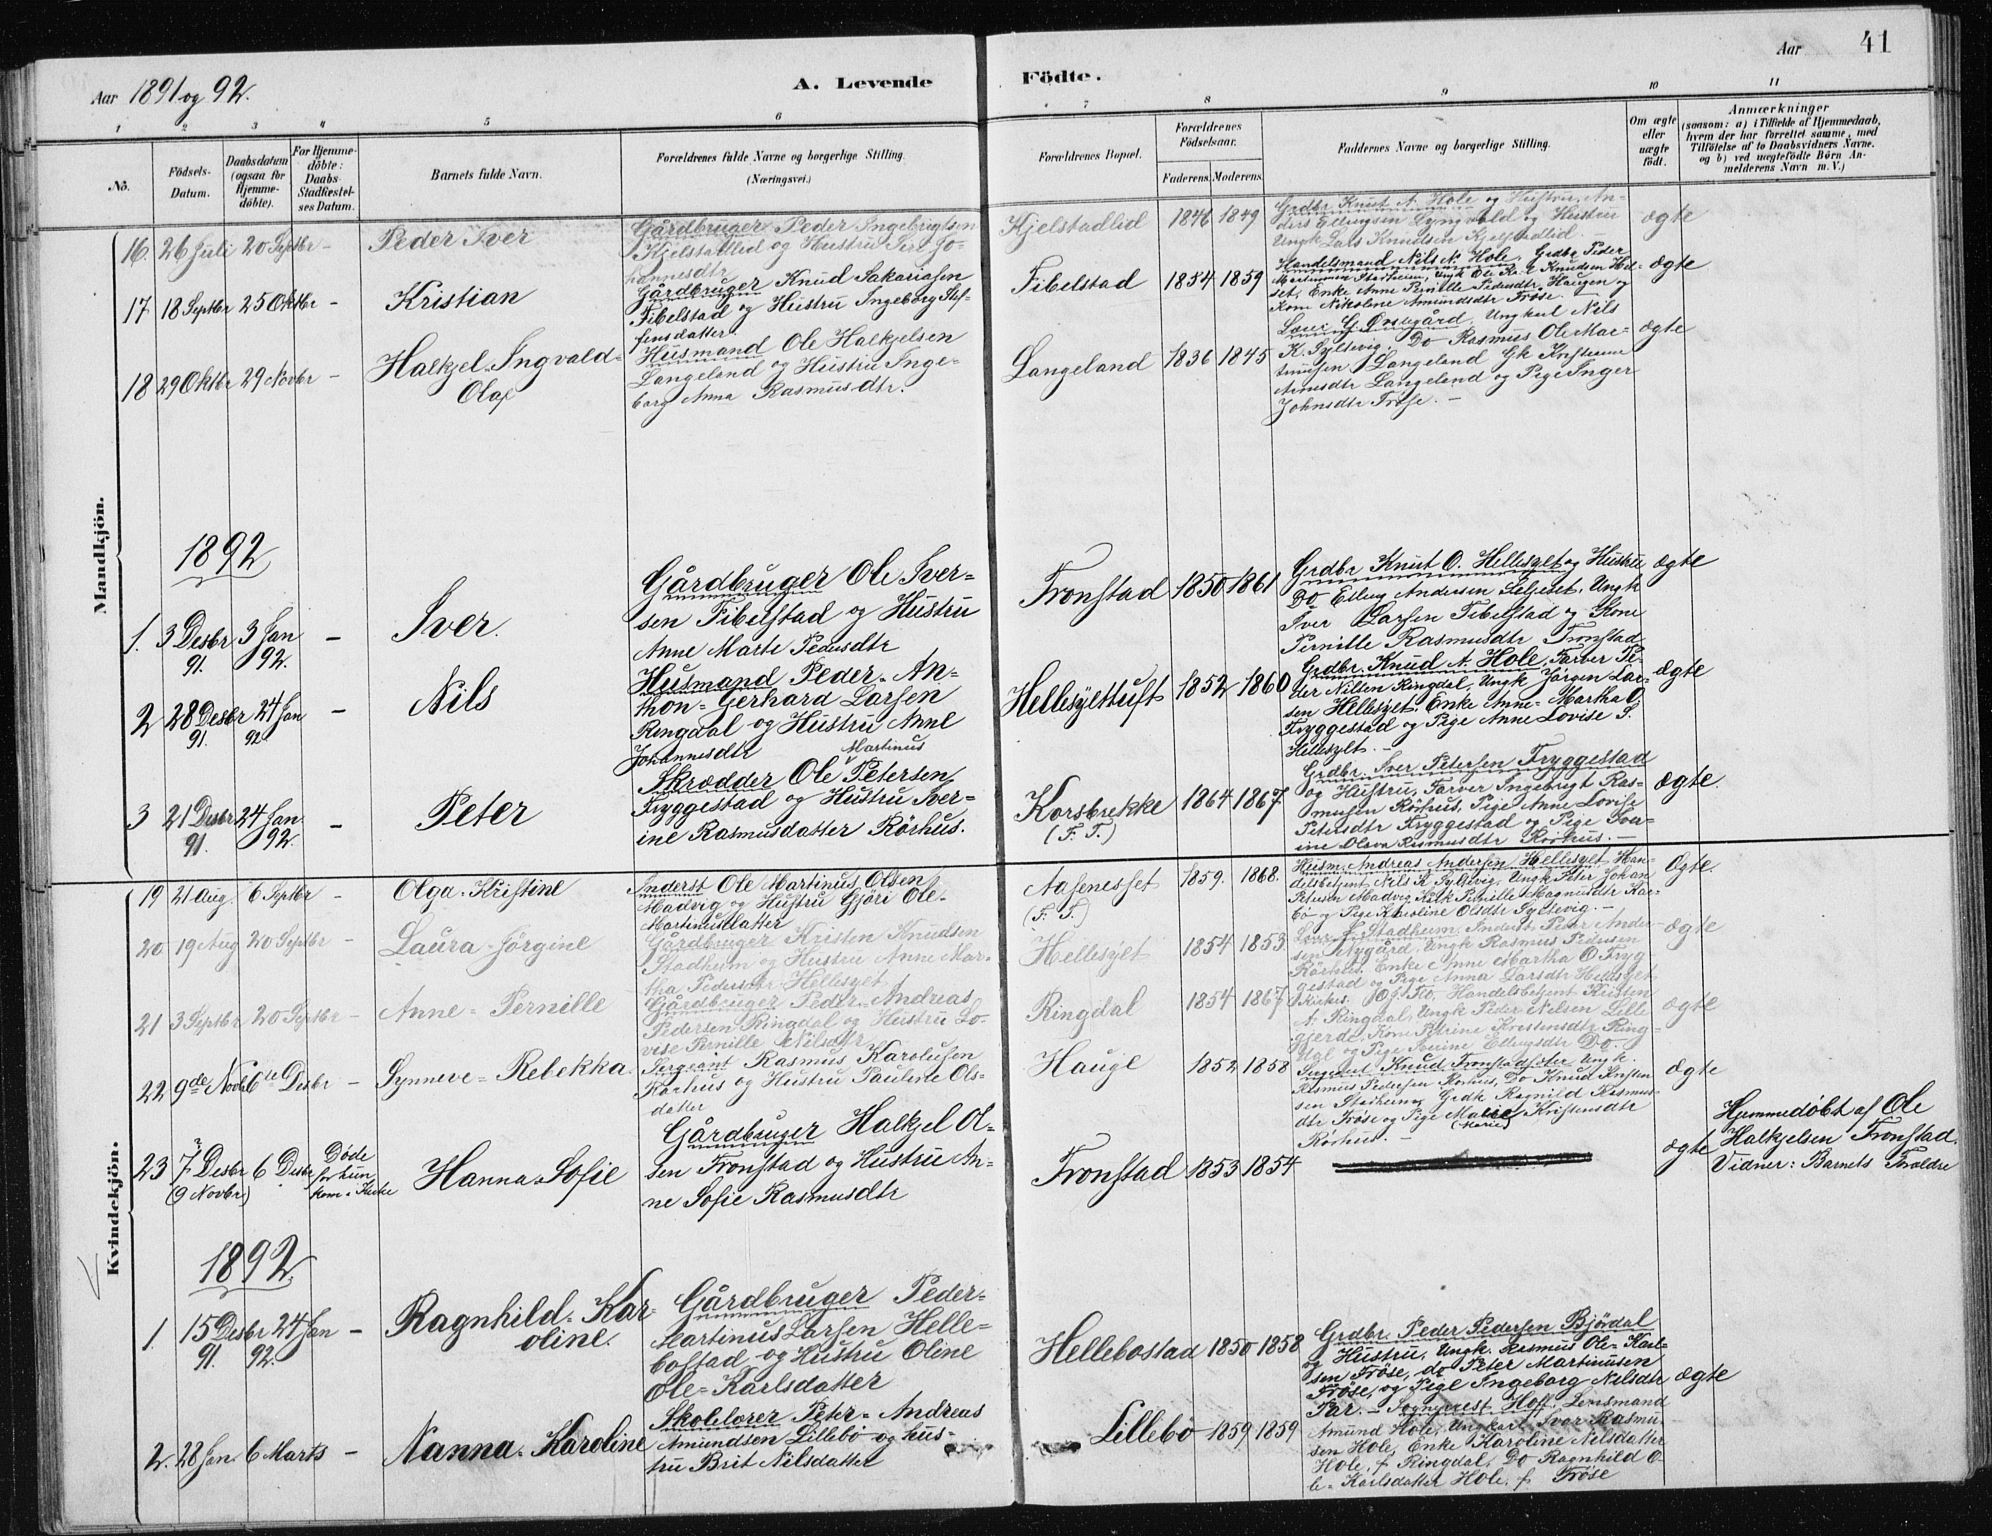 Aar 1891 og 92.
A. Levende
Födte.
Aar
41
1 2 3 4 5 6 7 8 9 10 11
No.
Födsels-
Datum.
Daabsdatum
(ogsaa for
Hjemme-
döbte).
For Hjemme-
döbte:
Daabs-
Stadfæstel-
ses Datum.
Barnets fulde Navn.
Forældrenes fulde Navne og borgerlige Stilling.
(Næringsvei.)
Forældrenes Bopæl.
Forældrenes
Födselsaar.
Faderens. Moderens.
Faddernes Navne og borgerlige Stilling.
Om ægte
eller
uægte
födt.
Anmærkninger
(saasom: a) i Tilfælde af Hjemmedaab,
hvem der har forrettet samme, med
Tilföielse af to Daabsvidners Navne.
og b) ved uægtefödte Börn An-
melderens Navn m. V.)
Mandkjön.
16. 26 Juli 20 Septbr – Peder Iver
Gårdbruger Peder Ingebrigtsen
Kjelstadlid og Hustru Seri Jo-
hannesdtr
Kjelstadlid 1846 1849
Grdbr Knut A. Hole og Hustru, An-
ders Ellingsen Lyngvold og Hustru
Ungk Lars Knudsen Kjelstadlid. –
ægte
17 18 Septbr 25 Oktbr – Kristian
Gårdbruger Knud Sakariasen
Fibelstad og Hustru Ingeborg Stef-
fensdatter
Fibelstad 1854 1859
Handelsmand Nils N. Hole, Grdbr Peder
Martinusen Stadheim, Ungk Ole Ka-l Knudsen Hel-
set, Enke Anne Pernille Pedersdtr Haugen og
Kone Nikoline Amundsdtr Frøse
ægte
18 29 Oktbr 29 Novbr – Halkjel Ingvald-
Olaf
Husmand Ole Halkjelsen
Langeland og Hustru Inge-
borg Anna Rasmusdtr.
Langeland 1836 1845
Lærer G. Ørstegård, Ungkarl Nils
K. Syltevig, Do Rasmus Ole Mar-
tinusen Langeland Gk Kristianne
Arnesdtr Langeland og Pige Inger
Johnsdtr Frøse. –
ægte
1892
1. 3 Desbr 3 Jan – Iver.
91. 92.
Gårdbruger Ole Iver-
sen Fibelstad og Hustru
Anne Marte Pedersdtr
Fronstad 1850 1861
Grdbr Knut O. Hellesylt og Hustru
Do Elling Andersen Seljeset, Ungk
Iver Larsen Fibelstad og Kone
Pernille Rasmusdtr Fronstad
ægte
2 28 Desbr 24 Jan – Nils
91. 92
Husmand Peder-An-
thon-Gerhard Larsen
Ringdal og Hustru Anne
Johannesdtr
Hellesylttuft 1852 1860
Grdbr. Knud A. Hole, Farver Pe-
der Nilsen Ringdal, Ungk Jørgen Lar-
sen Hellesylt, Enke Anne-Martha O.
Tryggestad og Pige Anne Lovise S.
Hellesylt. –
ægte
3 21 Desbr 24 Jan – Peter
91. 92.
Martinus
Skrædder Ole Petersen
Tryggestad og Hustru Iver-
ine Rasmusdatter Rörhus.
Korsbrekke 1864 1867.
(F. T.)
Grdbr. Iver Petersen Tryggestad
og Hustru, Farver Ingebrigt Ras-
musen Rörhus, Pige Anne Lovise
Petersdtr Tryggestad og Pige Iver-
ine Olava Rasmusdtr Rörhus. –
ægte.
Kvindekjön.
19 21 Aug. 6 Septbr – Olga-Kristine
Inderst Ole Martinus Olsen
Madvig og Hustru Gjøri Ole-
Martinusdatter
Aasenesset 1859. 1868.
(F. F.)
Husm. Andreas Andersen Hellesylt, Han-
delsbetjent Nils K Syltevig, Ungk Peter Johan
Petersen Madvig, Pernille Magnusdtr
og Pige Karoline Olsdtr Syltevig. –
Ægte.
20 19 Aug 20 Septbr – Laura-Jörgine
Gårdbruger Kristen Knudsen
Stadheim og Hustru Anne Mar-
tha Pedersdtr Hellesylt
Hellesylt 1854 1853
Stadheim, Inderst Peter Ander-
sen Nygård, Ungk Rasmus Pedersen
Rörhus, Enke Anne Martha O Tryg
gestad og Pige Anna Larsdtr Hellesylt
ægte
21 3 Septbr 20 Septbr – Anne-Pernille
Gårdbruger Peder-Andreas
Pedersen Ringdal og Hustru Lo-
vise Pernille Nilsdtr
Ringdal 1854 1867
Handelsbetjent Kristen
A. Ringdal, Ungk Peder Nilsen Lille
gjerde, Kone Petrine Kristensdtr Ring-
dal og Pige Ellingsdtr Do.
ægte
22 9de Novbr 6te Desbr – Synneve-Rebekka
Sergeant Rasmus Karolusen
Rörhus og Hustru Pauline Ols-
datter
Hauge 1852 1858
Sergeant Knud Fronstadsæter, Ungk.
Rasmus Pedersen Rörhus, Do Knud Kristen
sen Stadheim, Grdk Ragnild Rasmus-
dtr Frøse og Pige Kristensdtr
(Marie)
Rörhus. –
ægte
23 7. Desbr 6 Desbr Döde
(9 Novbr) for hun
kom i Kirke
Hanna-Sofie
Gårdbruger Halkjel Ol-
sen Fronstad og Hustru An-
ne Sofie Rasmusdtr
Fronstad 1853 1854
ægte
Hjemmedöbt af Ole
Halkjelsen Fronstad.
Vidner: Barnets Foreldre
1892
1. 15 Desbr 24 Jan – Ragnhild-Kar-
91. 92. oline.
Gårdbruger Peder-
Martinus Larsen Helle-
bostad og Hustru Oline
Ole-Karlsdatter
Hellebostad 1850 1858
Grdbr. Peder Pedersen Bjørdal
og Hustru, Ungk. Rasmus Ole-Karl-
sen Frøse, do Peter Martinusen
Frøse, og Pige Ingeborg Nilsdtr
ægte
2. 28 Jan. 6 Marts – Nanna-Karoline
Skolelærer Peter-Andreas
Amundsen Lillebö og Hus-
tru Brit Nilsdatter
Lillebö 1859 1859
Sogneprest Hoff, Lensmand
Amund Hole, Ungkarl Ivar Rasmu-
sen Hole, Enke Karoline Nilsdatter
Hole, f Ringdal, Do Ragnhild O-
le-Karlsdatter Hole, f Frøse